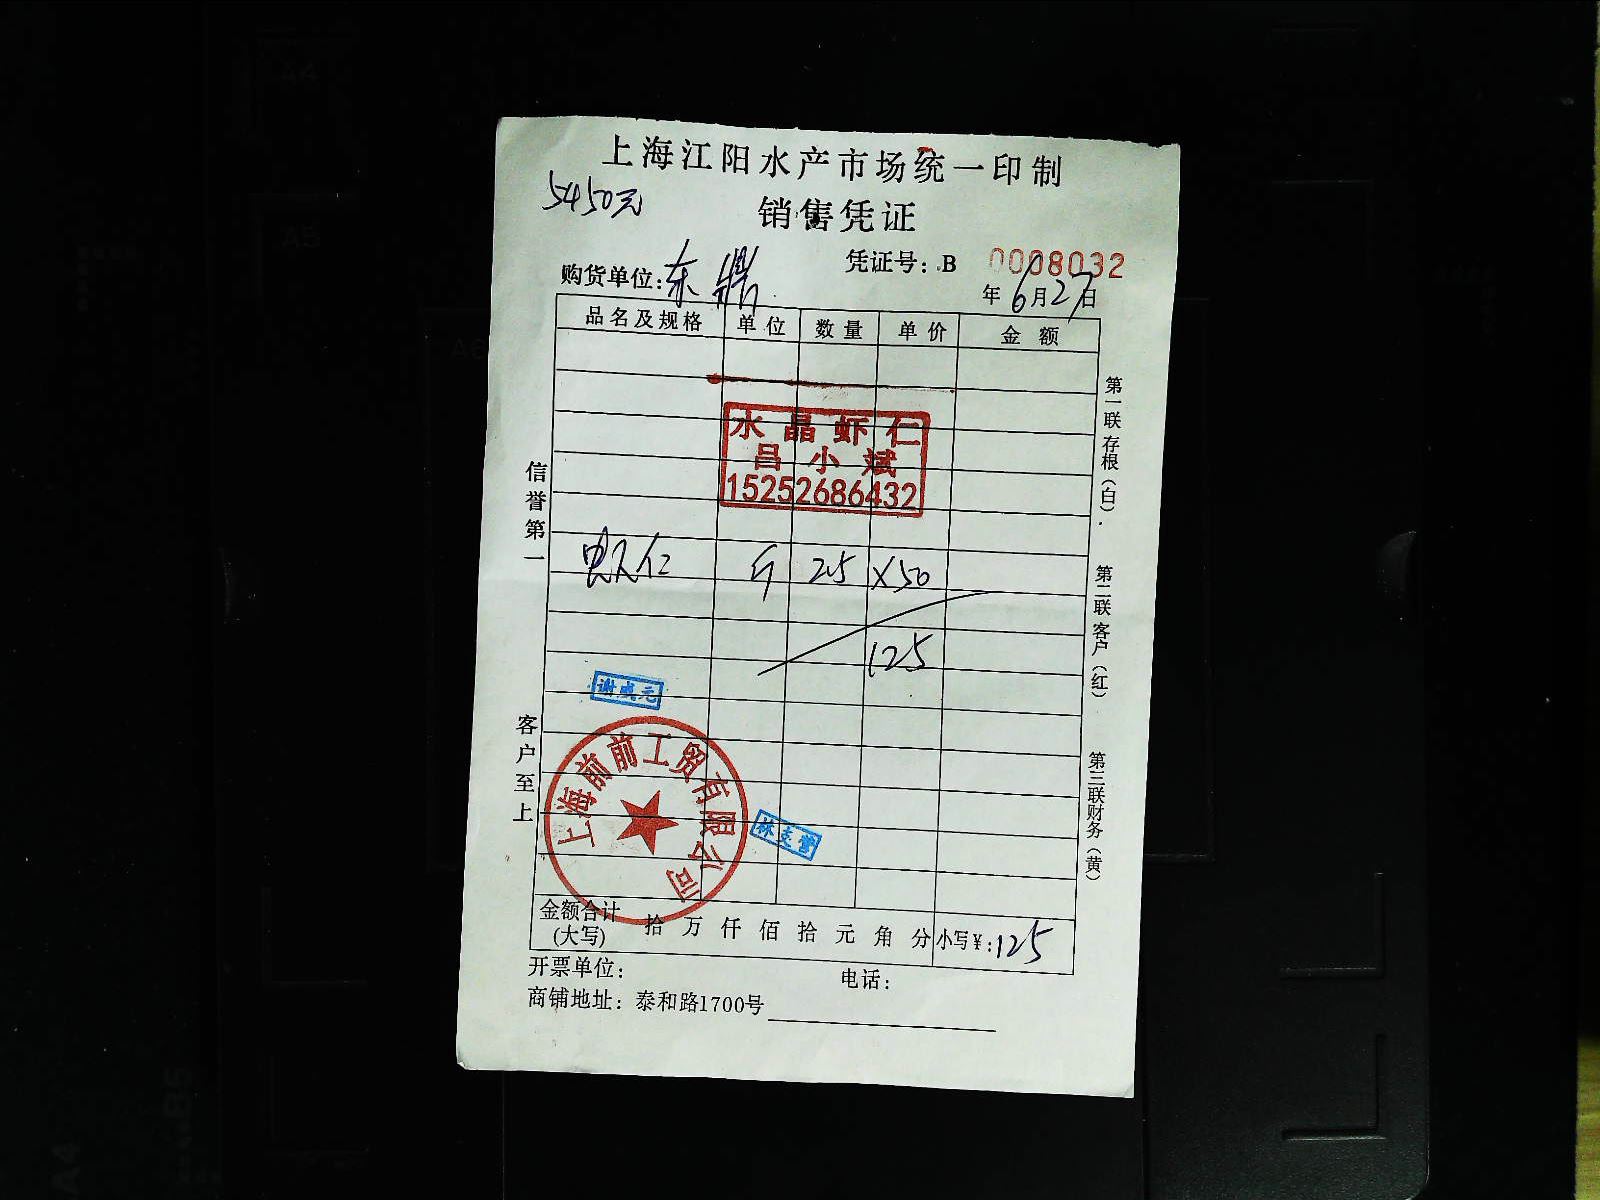 上海江阳水产市场统一印制
5450元
销售凭证
凭证号：B 0008032
购货单位：东鼎
年6月27日
品名及规格 单位 数量 单价 金额
水晶虾仁
吕小斌
15252686432
虾仁 斤 2.5 ×50
125
谢成元
上海前前工贸有限公司
林支营
金额合计(大写) 拾 万 仟 佰 拾 元 角 分 小写¥：125
开票单位： 电话：
商铺地址：泰和路1700号
信誉第一
客户至上
第一联 存根（白）.
第二联 客户（红）
第三联财务（黄）
A4
A5